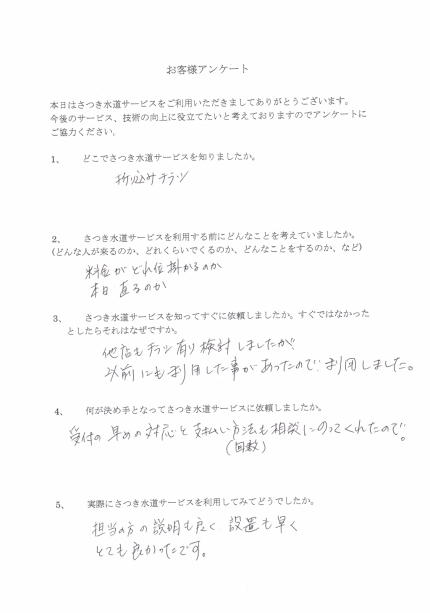 お客様アンケート
本日はさつき水道サービスをご利用いただきましてありがとうございます。
今後のサービス、技術の向上に役立てたいと考えておりますのでアンケートに
ご協力ください。
1、 どこでさつき水道サービスを知りましたか。
折込みチラシ
2、 さつき水道サービスを利用する前にどんなことを考えていましたか。
(どんな人が来るのか、どれくらいでくるのか、どんなことをするのか、など)
料金がどれ位掛かるのか
本日直るのか
3、 さつき水道サービスを知ってすぐに依頼しましたか。すぐではなかった
としたらそれはなぜですか。
他店もチラシ有り検討しましたが
以前にも利用した事があったので利用しました。
4、 何が決め手となってさつき水道サービスに依頼しましたか。
受付の早めの対応と支払い方法も相談にのってくれたので。
(回数)
5、 実際にさつき水道サービスを利用してみてどうでしたか。
担当の方の説明も良く設置も早く
とても良かったです。